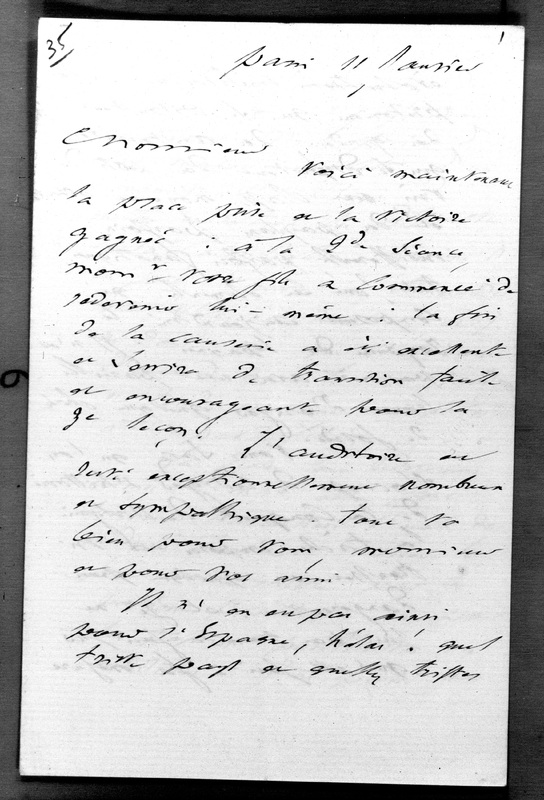 35
Paris 11 Janvier
Monsieur
Voici maintenant
la place prise et la victoire
gagnée : à la 2de séance,
monsr votre fils a commencé de
redevenir lui-même : la fin
de la causerie a été excellente
et de transition faite
et encourageante pour la
3e leçon. L'auditoire est
resté exceptionnellement nombreux
et sympathique. tout va
bien pour vous, monsieur
et pour vos amis.
Il n'en est pas ainsi
pour l'Espagne, hélas ! quel
triste pays et quelles tristes